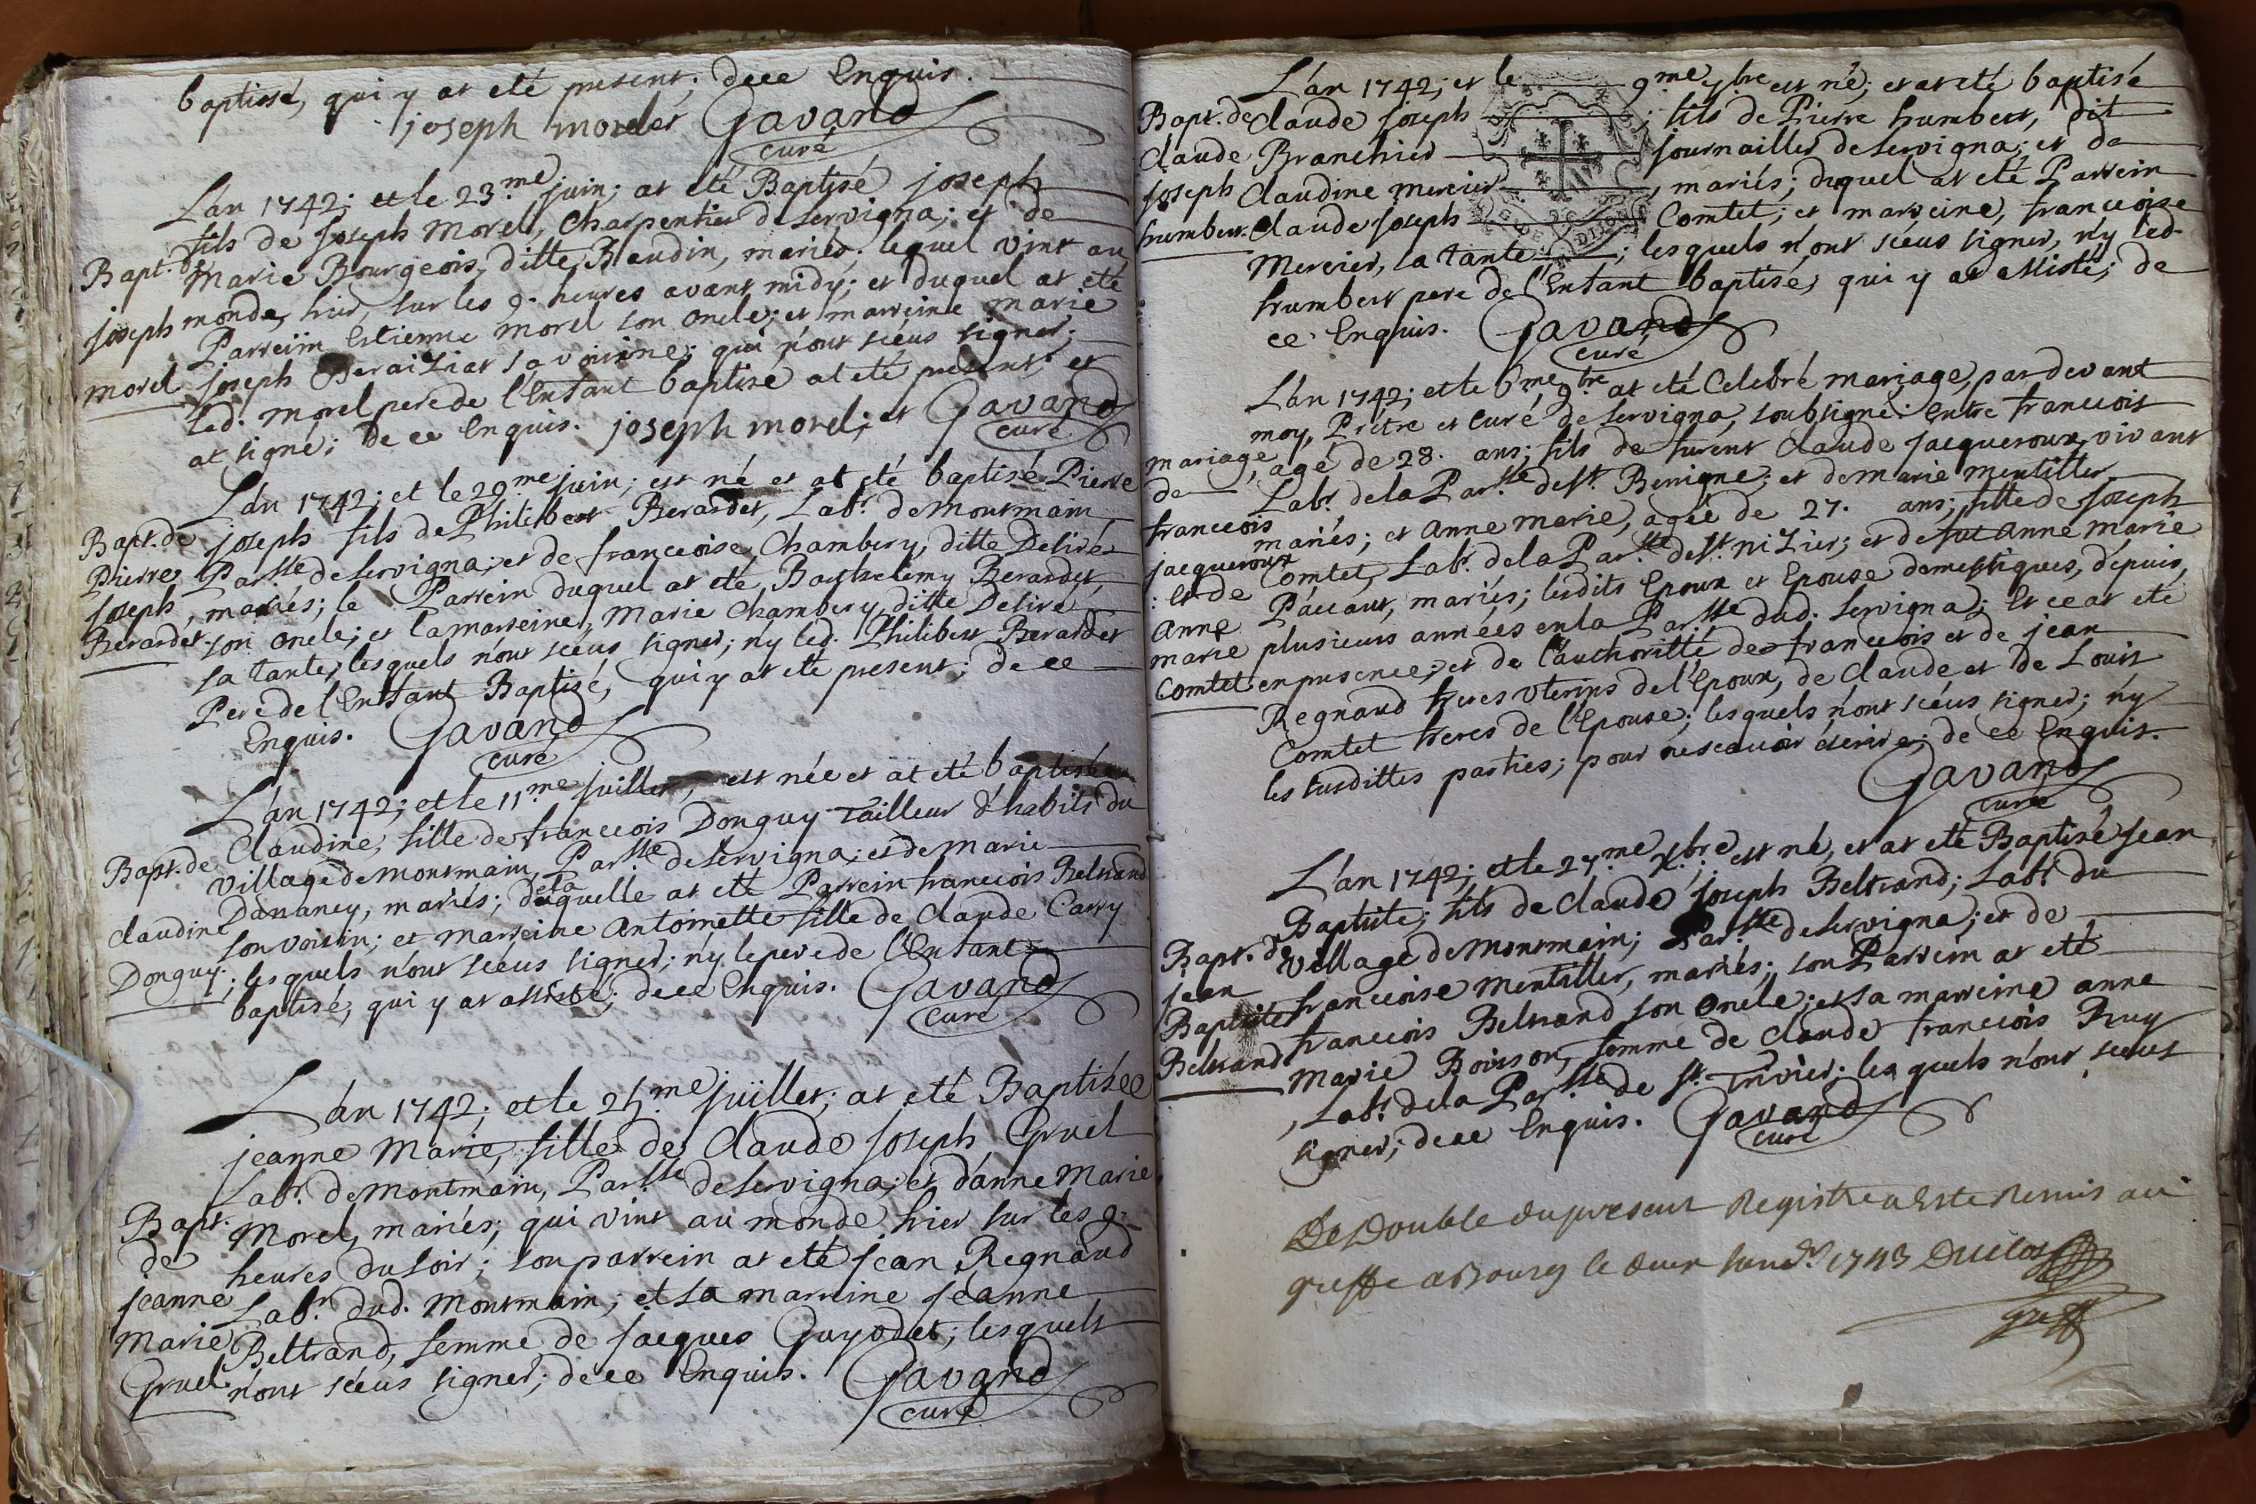 baptisé, qui y at eté present; dece Enquis.
joseph morel et Gavand
curé
L'an 1742; et le 23.me juin; at eté Baptisé joseph
fils de joseph Morel, Charpentier de servigna; et de
Bapt. de Marie Bourgeois, ditte Baudin, mariés; lequel vint au
joseph monde, hier, sur les 9. heures avant midy; et duquel at eté
Parrein Estienne Morel son oncle; et marreine marie
morel joseph Beraiziat sa voisine; qui n'ont sceus signer;
led. morel pere de l'Enfant baptisé at eté present et
at signé; de ce Enquis. joseph morel; et Gavand
curé
L'an 1742; et le 29.me juin; est né et at eté baptisé Pierre
Bapt. de joseph fils de Philibert Berardet, Lab.r de Montmain
Pierre Par.sse de servigna; et de francoise Chambery, ditte Deliré
joseph , mariés; le Parrein duquel at eté Barthelemy Berardet,
Berardet. son oncle; et la marreine, Marie Chambery ditte Deliré
sa tante, lesquels n'ont sceus signer; n'y led. Philibert Berardet
Pere de l'Enfant Baptisé, qui y at eté present; de ce
Enquis. Gavand
curé
L'an 1742; et le 11.me juillet, est née et at eté baptisée
Bapt. de Claudine, fille de francois Donguy Tailleur d'habits du
village de Montmain, Par.sse de servigna; et de Marie
Claudine Dananey, mariés; de laquelle at eté Parrein francois Beltrand
son voisin; et marreine Antoinette fille de Claude Carry
Donguy. ; lesquels n'ont sceus signer; n'y le pere de l'Enfant
baptisé, qui y at assisté; dece Enquis. Gavand
curé
L'an 1742; et le 25.me juillet; at eté Baptisée
jeanne Marie, fille de Claude joseph Gruel
Lab.r de Montmain, Par.sse de servigna; et d'anne Marie
Bapt. Morel, mariés; qui vint au monde hier sur les 9.
de heures du soir; son parrein at eté jean Regnaud
jeanne Lab.r dud. Montmain; et sa marreine jeanne
Marie Beltrand, femme de jacques Guyodet; lesquels
Gruel. n'ont sceus signer; de ce Enquis. Gavand
curé
L'an 1742; et le 9.me 7bre est né; et at eté baptisé
Bapt. de Claude joseph ; fils de Pierre humbert, dit
Claude Branchier journallier de servigna; et de
joseph Claudine Mercier , mariés; duquel at eté Parrein
humbert. Claude joseph Comtet; et marreine, francoise
Mercier, la tante ; lesquels n'ont sceus signer, n'y led.
humbert pere de l'Enfant baptisé, qui y at assisté; de
ce Enquis. Gavand
curé
L'an 1742; et le 6.me 9.bre at eté Celebré mariage, par devant
moy, Prêtre et Curé de servigna, soubsigné: Entre francois
mariage , agé de 28. ans; fils de furent Claude jacqueroux, vivant
de Lab.r de la Par.sse de s.t Benigne; et de marie mentiller
francois mariés; et Anne marie, agée de 27. ans; fille de joseph
jacqueroux Comtet, Lab.r de la Par.sse de s.t niZier; et de fut Anne marie
: et de Paccaut, mariés; lesdits Epoux et Epouse domestiques, depuis
Anne
marie plusieurs années en la Par.sse dud. servigna; Et ce at eté
Comtet en presence, et de l'authoritté de francois et de jean
Regnaud freres uterins de l'Epoux, de Claude et de Louis
Comtet freres de l'Epouse; lesquels n'ont sceus signer; n'y
les susdittes parties; pour ne scavoir écrire; de ce Enquis.
Gavand
curé
L'an 1742; et le 27.me X.bre; est né, et at eté Baptisé jean
Baptiste; fils de Claude joseph Beltrand; Lab.r du
Bapt. de village de Montmain; Par.sse de servigna; et de
jean
Baptiste francoise Mentiller, mariés; son Parrein at eté
Beltrand francois Beltrand son oncle; et sa marreine anne
Marie Boisson, femme de Claude francois Buy
, Lab.r de la Par.sse de s.t Trivier; lesquels n'ont sceus
signer; de ce Enquis. Gavand
curé
Le Double du present Registre a Esté Remis au
greffe a Bourg le deux 1743 Duclos
greff